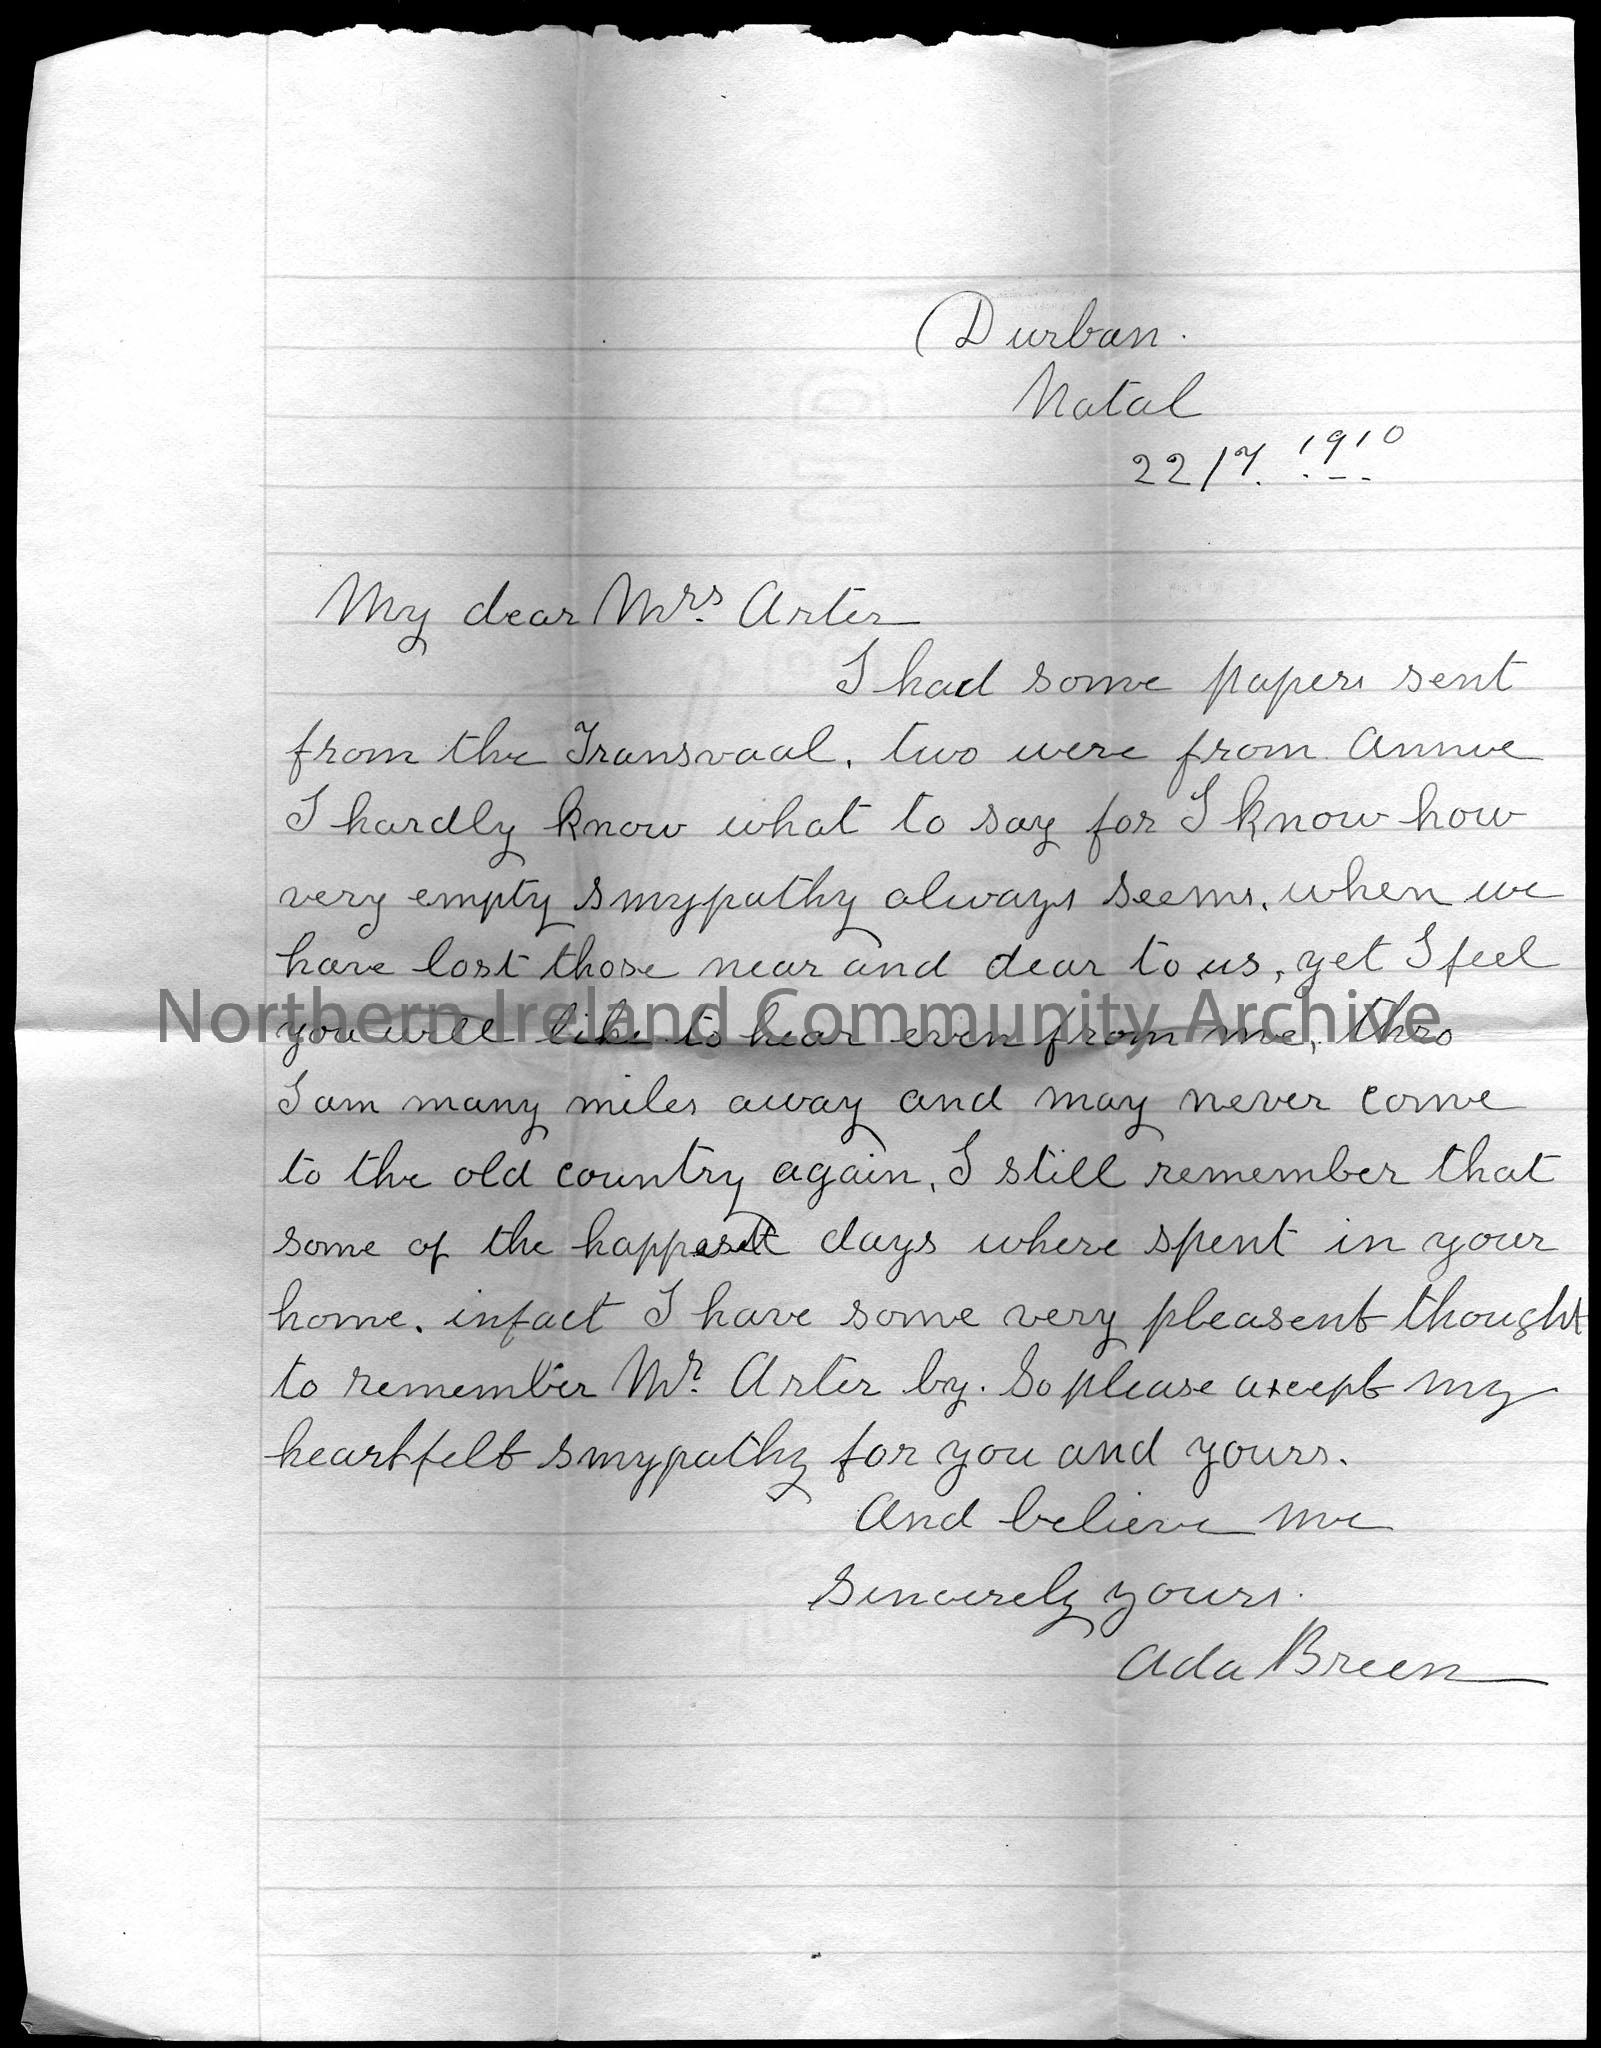 Durban.
Natal
22/7. 1910
My dear Mrs. Arter
I had some papers sent
from the Transvaal, two were from Annie
I hardly know what to say for I know how
very empty smypathy always seems, when we
have lost those near and dear to us, yet I feel
you will like to hear even from me, thro
Northern Ireland Community Archive
I am many miles away and may never come
to the old country again, I still remember that
some of the happest days where spent in your
home. infact I have some very pleasent thought
to remember Mr. Arter by. So please axcept my
heartfelt smypathy for you and yours.
And believe me
Sincerely yours.
Ada Breen